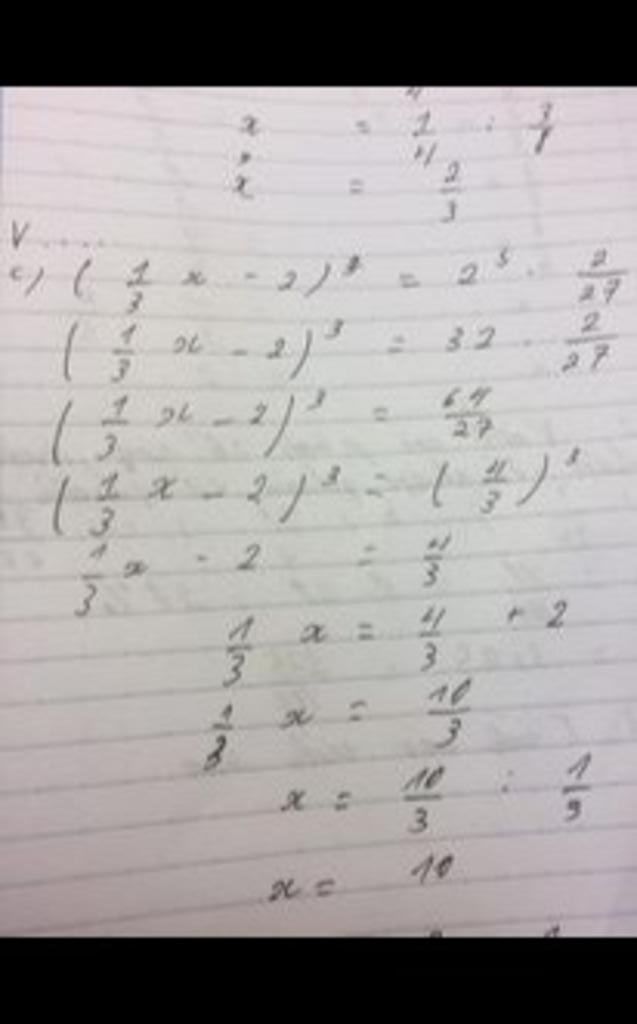 x = 1/4 : 3/8
x = 2/3
V....
c) ( 1/3 x - 2 )³ = 2⁵ · 2/27
( 1/3 x - 2 )³ = 32 · 2/27
( 1/3 x - 2 )³ = 64/27
( 1/3 x - 2 )³ = ( 4/3 )³
1/3 x - 2 = 4/3
1/3 x = 4/3 + 2
1/3 x = 10/3
x = 10/3 : 1/3
x = 10